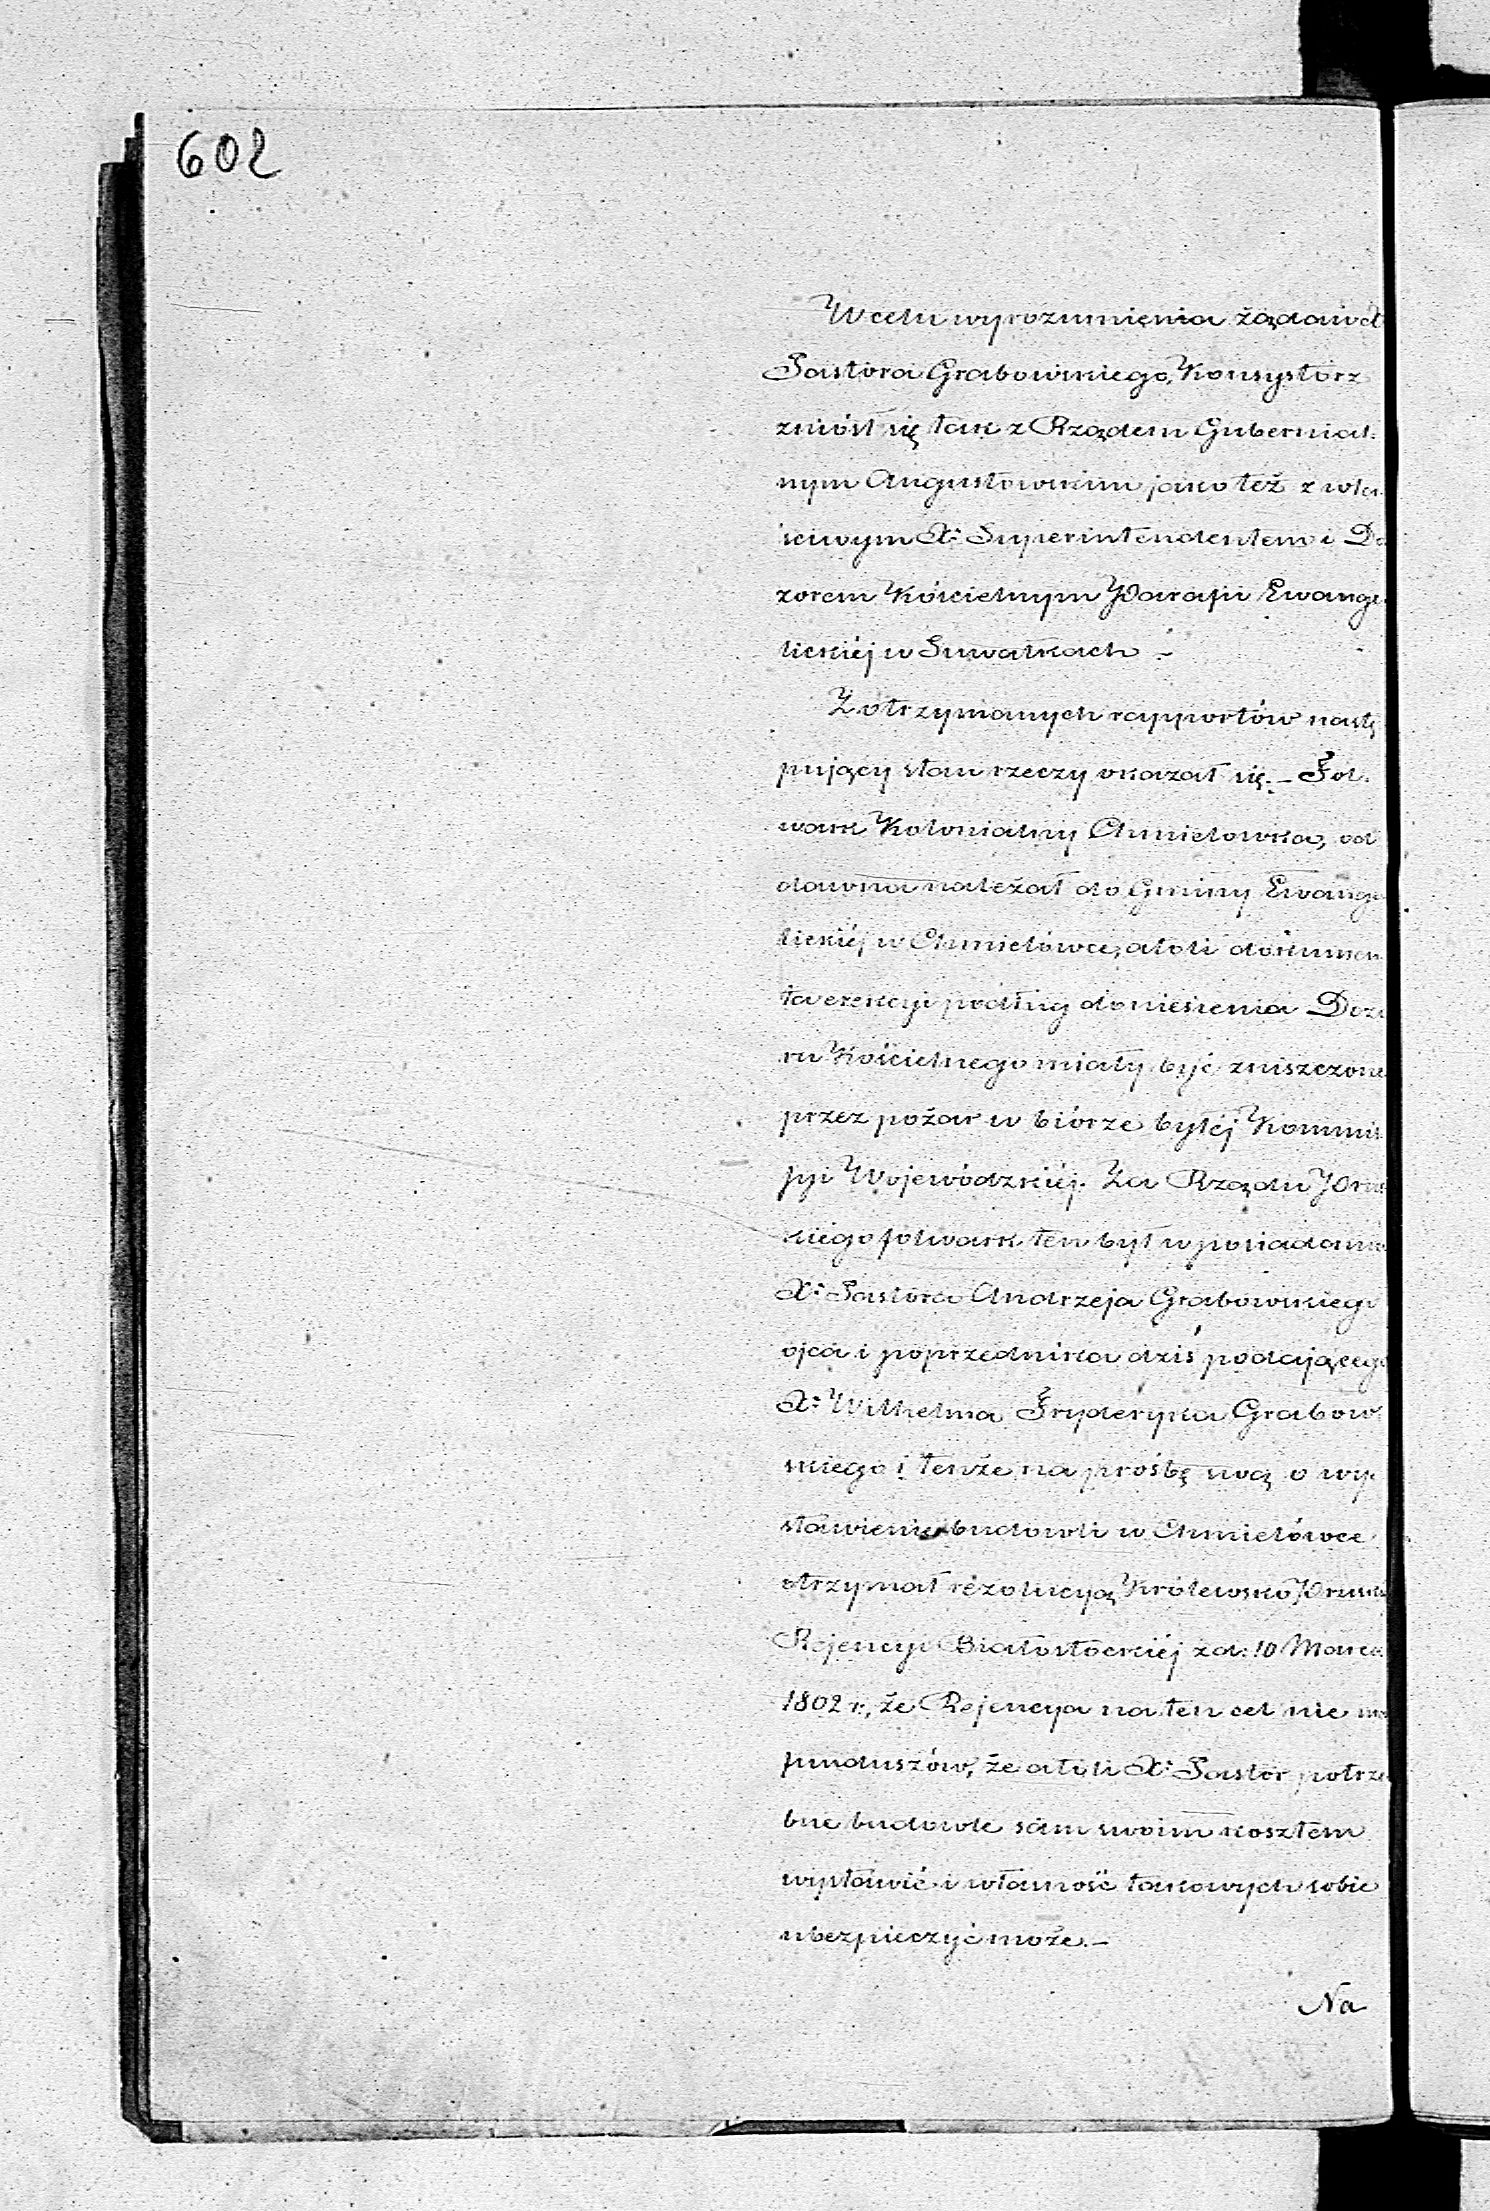 602
W celu wyrozumienia żądań ct
Pastora Grabowskiego, Konsystorz
zniósł się tak z Rządem Gubernial-
nym Augustowskim jako też z wła
ściwym X: Superintendentem i Do
zorem Kościelnym Parafii Ewange
lickiéj w Suwałkach –
Z otrzymanych rapportów nastę
pujący stan rzeczy okazał się. – Fol-
wark Kolonialny Chmielowka, od
dawna należał do Gminy Ewange
lickiéj w Chmielówce, atoli dokumen
ta erekcyi podług doniesienia Dozo
ru Kościelnego miały być zniszczone
przez pożar w biórze byłéj Kommis
syi Wojewódzkiéj. Za Rządu Prus
kiego folwark ten był w posiadaniu
X: Pastora Andrzeja Grabowskiego
ojca i poprzednika dziś podającego
X: Wilhelma Fryderyka Grabow
skiego i tenże na prośbę swą o wy-
stawienie budowli w Chmielówce
otrzymał rezolucyą Królewsko Prusk
Rejencyi Białostockiéj z d: 10 Marca
1802 r., że Rejencya na ten cel nie ma
funduszów, że atoli X: Pastor potrze
bne budowle sam swoim kosztem
wystawić i własność takowych sobie
ubezpieczyć może. –
Na